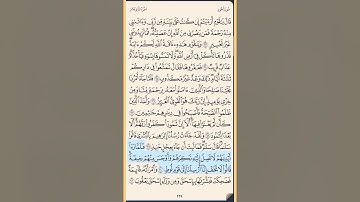 قَالَ يَٰقَوْمِ أَرَءَيْتُمْ إِن كُنتُ عَلَىٰ بَيِّنَةٍ مِّن رَّبِّي وَءَاتَىٰنِي
مِنْهُ رَحْمَةً فَمَن يَنصُرُنِي مِنَ ٱللَّهِ إِنْ عَصَيْتُهُۥ فَمَا تَزِيدُونَنِي
غَيْرَ تَخْسِيرٍ ٦٣ وَيَٰقَوْمِ هَٰذِهِۦ نَاقَةُ ٱللَّهِ لَكُمْ ءَايَةً
فَذَرُوهَا تَأْكُلْ فِيٓ أَرْضِ ٱللَّهِ وَلَا تَمَسُّوهَا بِسُوٓءٍ فَيَأْخُذَكُمْ
عَذَابٌ قَرِيبٌ ٦٤ فَعَقَرُوهَا فَقَالَ تَمَتَّعُوا۟ فِي دَارِكُمْ
ثَلَٰثَةَ أَيَّامٍ ذَٰلِكَ وَعْدٌ غَيْرُ مَكْذُوبٍ ٦٥ فَلَمَّا جَآءَ أَمْرُنَا
نَجَّيْنَا صَٰلِحًا وَٱلَّذِينَ ءَامَنُوا۟ مَعَهُۥ بِرَحْمَةٍ مِّنَّا وَمِنْ
خِزْيِ يَوْمِئِذٍ إِنَّ رَبَّكَ هُوَ ٱلْقَوِيُّ ٱلْعَزِيزُ ٦٦ وَأَخَذَ ٱلَّذِينَ
ظَلَمُوا۟ ٱلصَّيْحَةُ فَأَصْبَحُوا۟ فِي دِيَٰرِهِمْ جَٰثِمِينَ ٦٧
كَأَن لَّمْ يَغْنَوْا۟ فِيهَآ أَلَآ إِنَّ ثَمُودَا۟ كَفَرُوا۟ رَبَّهُمْ أَلَا
بُعْدًا لِّثَمُودَ ٦٨ وَلَقَدْ جَآءَتْ رُسُلُنَآ إِبْرَٰهِيمَ بِٱلْبُشْرَىٰ قَالُوا۟
سَلَٰمًا قَالَ سَلَٰمٌ فَمَا لَبِثَ أَن جَآءَ بِعِجْلٍ حَنِيذٍ ٦٩ فَلَمَّا رَءَآ
أَيْدِيَهُمْ لَا تَصِلُ إِلَيْهِ نَكِرَهُمْ وَأَوْجَسَ مِنْهُمْ خِيفَةً
قَالُوا۟ لَا تَخَفْ إِنَّآ أُرْسِلْنَآ إِلَىٰ قَوْمِ لُوطٍ ٧٠ وَٱمْرَأَتُهُۥ قَآئِمَةٌ
فَضَحِكَتْ فَبَشَّرْنَٰهَا بِإِسْحَٰقَ وَمِن وَرَآءِ إِسْحَٰقَ يَعْقُوبَ ٧١
٢٢٩